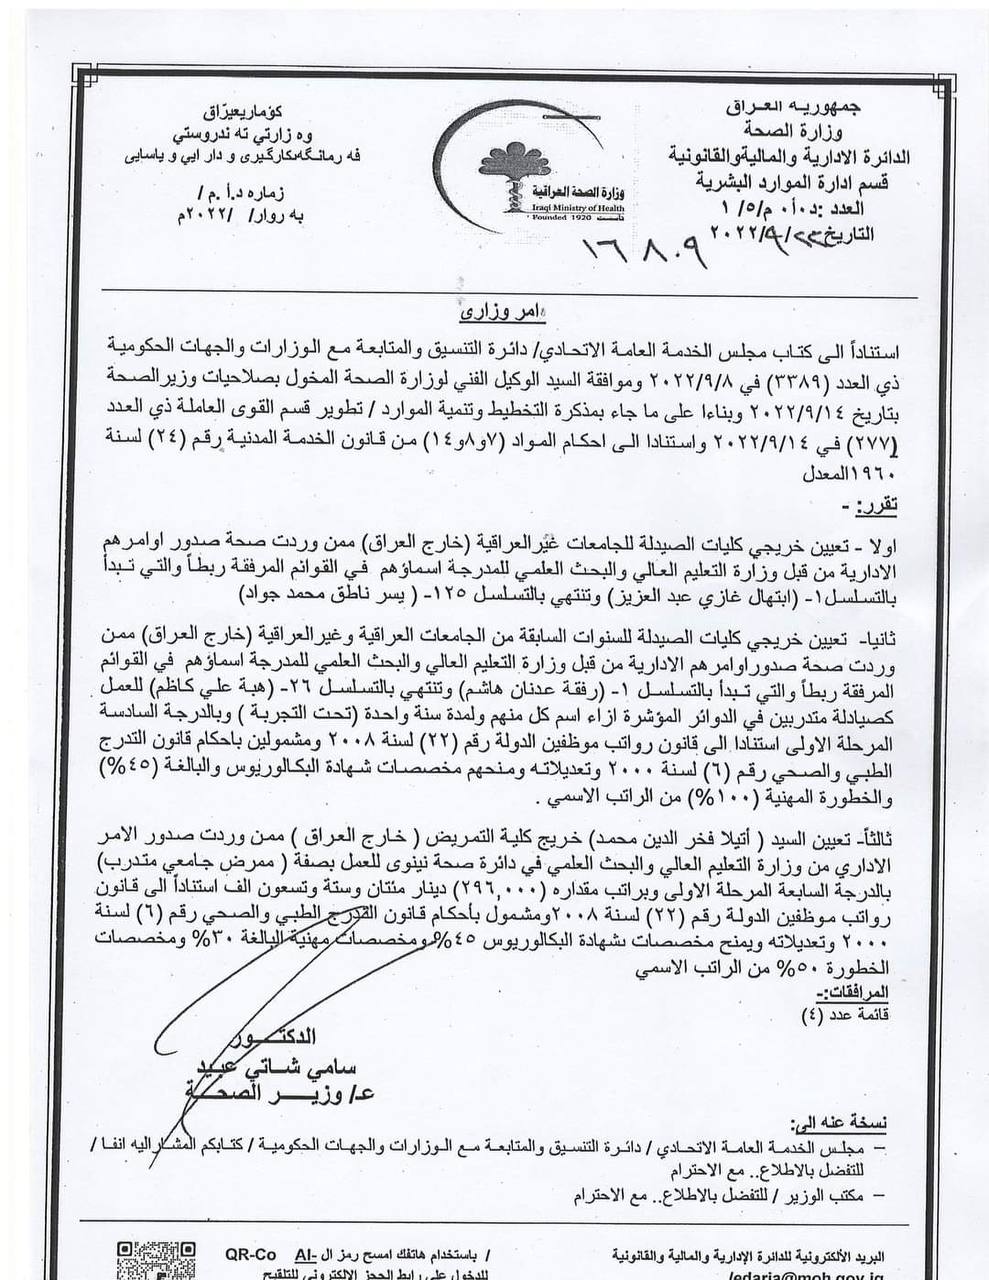 جمهورية العراق
وزارة الصحة
الدائرة الادارية والمالية والقانونية
قسم ادارة الموارد البشرية
العدد :د٠أ٠م/٥/ ١
التاريخ ٢٠٢٢/٩/٢٣
١٦٨٠٩
وزارة الصحة العراقية
Iraqi Ministry of Health
Founded 1920 تأسست
كۆماریعێراق
وه زارتي ته ندروستي
فه رمانگهكارگيرى و دار ايي و ياسايى
زماره د.أ .م /
به روار/ /٢٠٢٢م
امر وزاري
استناداً الى كتاب مجلس الخدمة العامة الاتحادي/ دائرة التنسيق والمتابعة مع الوزارات والجهات الحكومية
ذي العدد (٣٣٨٩) في ٢٠٢٢/٩/٨ وموافقة السيد الوكيل الفني لوزارة الصحة المخول بصلاحيات وزيرالصحة
بتاريخ ٢٠٢٢/٩/١٤ وبناءا على ما جاء بمذكرة التخطيط وتنمية الموارد / تطوير قسم القوى العاملة ذي العدد
(٢٧٧) في ٢٠٢٢/٩/١٤ واستنادا الى احكام المواد (٧و٨و١٤) من قانون الخدمة المدنية رقم (٢٤) لسنة
١٩٦٠المعدل
تقرر: -
اولا - تعيين خريجي كليات الصيدلة للجامعات غيرالعراقية (خارج العراق) ممن وردت صحة صدور اوامرهم
الادارية من قبل وزارة التعليم العالي والبحث العلمي للمدرجة اسماؤهم في القوائم المرفقة ربطاً والتي تبدأ
بالتسلسل١- (ابتهال غازي عبد العزيز) وتنتهي بالتسلسل ١٢٥- ( يسر ناطق محمد جواد)
ثانيا- تعيين خريجي كليات الصيدلة للسنوات السابقة من الجامعات العراقية وغيرالعراقية (خارج العراق) ممن
وردت صحة صدوراوامرهم الادارية من قبل وزارة التعليم العالي والبحث العلمي للمدرجة اسماؤهم في القوائم
المرفقة ربطاً والتي تبدأ بالتسلسل ١- (رفقة عدنان هاشم) وتنتهي بالتسلسل ٢٦- (هبة علي كاظم) للعمل
كصيادلة متدربين في الدوائر المؤشرة ازاء اسم كل منهم ولمدة سنة واحدة (تحت التجربة ) وبالدرجة السادسة
المرحلة الاولى استنادا الى قانون رواتب موظفين الدولة رقم (٢٢) لسنة ٢٠٠٨ ومشمولين باحكام قانون التدرج
الطبي والصحي رقم (٦) لسنة ٢٠٠٠ وتعديلاته ومنحهم مخصصات شهادة البكالوريوس والبالغة (٤٥%)
والخطورة المهنية (١٠٠%) من الراتب الاسمي .
ثالثاً- تعيين السيد ( أتيلا فخر الدين محمد) خريج كلية التمريض ( خارج العراق ) ممن وردت صدور الامر
الاداري من وزارة التعليم العالي والبحث العلمي في دائرة صحة نينوى للعمل بصفة ( ممرض جامعي متدرب)
بالدرجة السابعة المرحلة الاولى وبراتب مقداره (٢٩٦,٠٠٠) دينار مئتان وستة وتسعون الف استناداً الى قانون
رواتب موظفين الدولة رقم (٢٢) لسنة ٢٠٠٨ومشمول بأحكام قانون التدرج الطبي والصحي رقم (٦) لسنة
٢٠٠٠ وتعديلاته ويمنح مخصصات شهادة البكالوريوس ٤٥% ومخصصات مهنية البالغة ٣٠% ومخصصات
الخطورة ٥٠% من الراتب الاسمي
المرافقات:-
قائمة عدد (٤)
الدكتـــور
سامي شاتي عبيد
ع/ وزيـــر الصحـــة
نسخة عنه الى:
– مجلس الخدمة العامة الاتحادي / دائرة التنسيق والمتابعة مع الوزارات والجهات الحكومية / كتابكم المشار اليه انفا /
للتفضل بالاطلاع.. مع الاحترام
– مكتب الوزير / للتفضل بالاطلاع.. مع الاحترام
البريد الألكترونية للدائرة الإدارية والمالية والقانونية
/edaria@moh.gov.iq
/ باستخدام هاتفك امسح رمز ال QR-Co AI-
للدخول على رابط الحجز الالكتروني للتلقيح